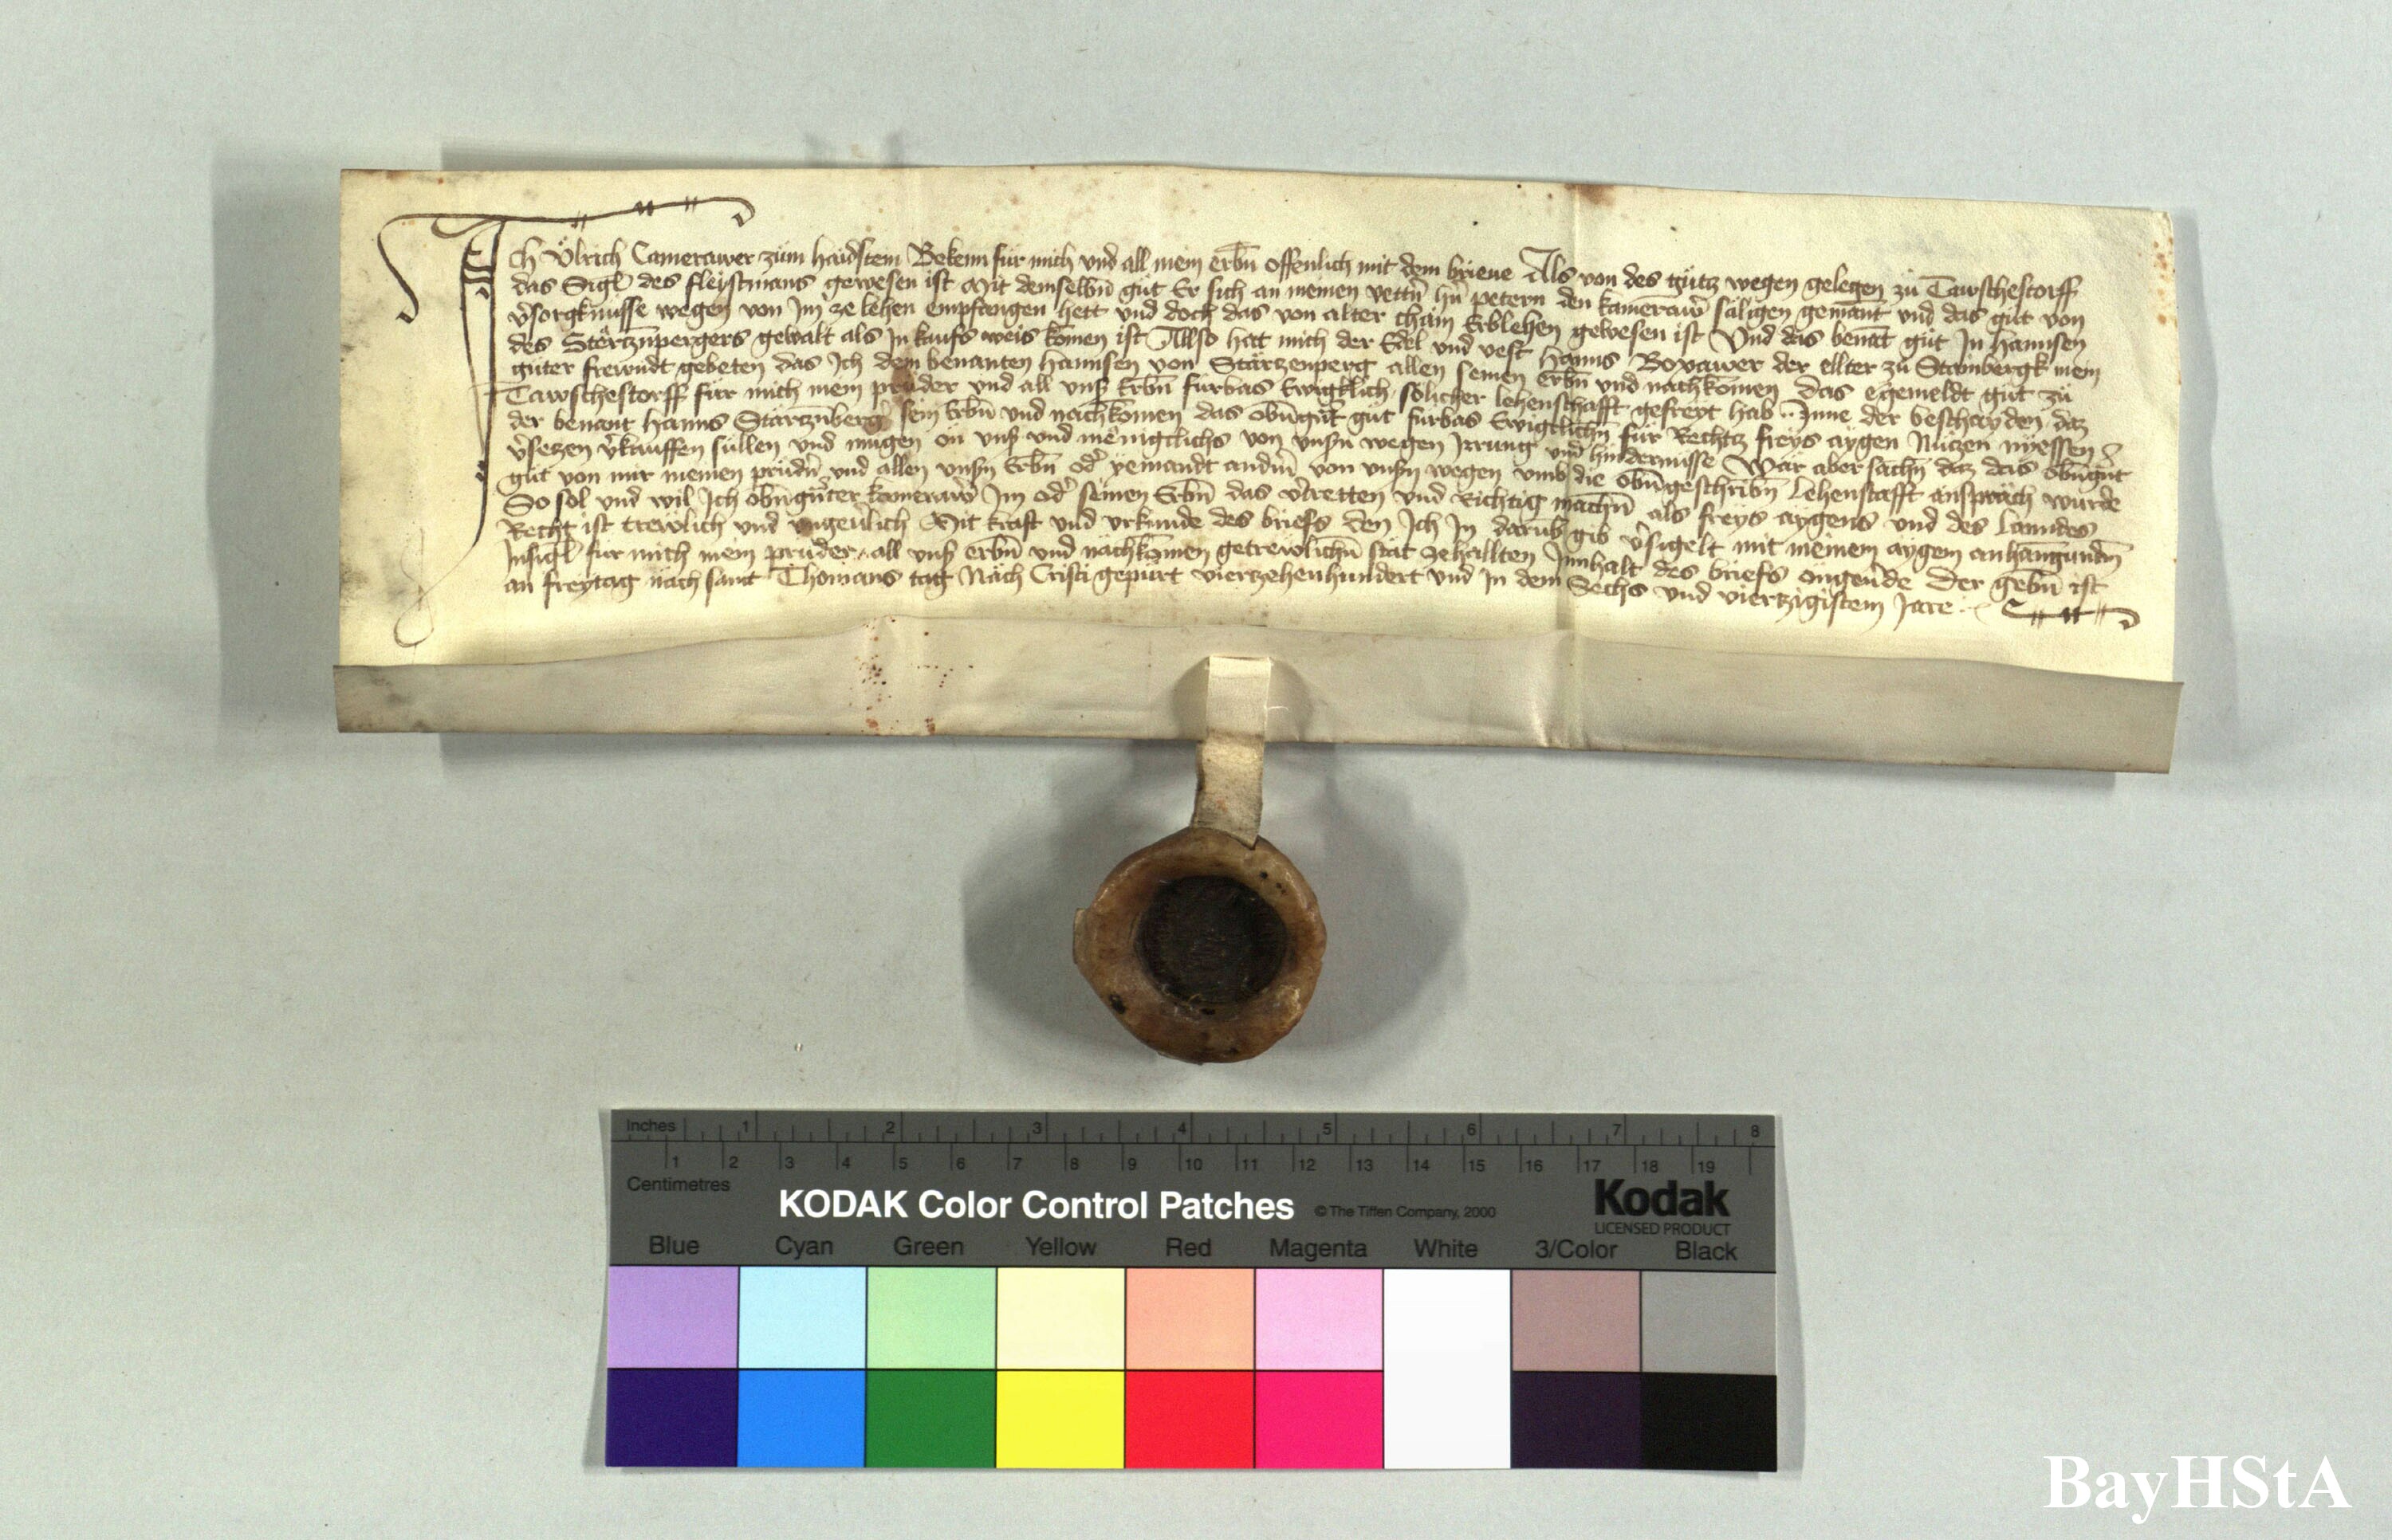 Ich Ulrich Camerawer zum haidstein Bekenn für mich vnd all mein erbn̄ offenlich mit dem brieue Als von des gutz wegen gelegen zu Tawschestorff
das Sigl des fleystmans gewesen ist Mit demselbn̄ gut Er sich an meinen vettn̄ hn̄ petern den kamerawer säligen gemant vnd das gut von
v̄sorgknusse wegen von Im ze lehen empfangen hett vnd doch das von alter cham Erblehen gewesen ist Vnd das benāt gut In hannsen
des Störtznpergers gewalt als In kaufs weis komen ist Allso hat mich der Edel vnd vest hanns Boxawer der ellter zu Stainbergk mein
guter frewndt gebeten das Ich dem benanten hannsen von Stärtzenperg allen seinen Erbn̄ vnd nachkomen das egemeldt gut zu
Tawschestorff für mich mein prüder vnd all vnsß Erbn̄ fürbas Ewigklich sölicher lehenschafft gefreyt hab Inne der beschayden daz
der benant hanns Stärtznberg sein Erbn̄ vnd nachkomen das obngūt gut fürbas Ewigklichn̄ für Rechtz freys aygen Nützen nyessen
v̄setzen v̄kauffen süllen vnd mügen on vnß vnd menigklichs von vnsn̄ wegen Irrung vnd hindernusse Wär aber sachn̄ daz das obngūt
gut von mir meinen prüdn̄ vnd allen vnsn̄ Erbn̄ od̄ yemandt andn̄ von vnsn̄ wegen vmb die obn̄geschribn̄ lehenscafft anspräch wurde
So sol vnd wil Ich obngn̄ter kamerawer Im od̄ seinen Erbn̄ das v̄tretten vnd Richtig machn̄ als freys aygens vnd des lanndes
Recht ist trewlich vnd vngeūlich Mit kraft vnd vrkunde des briefs den Ich In darüb gib v̄sigelt mit meinem aygem anhangundn̄
Insigl für mich mein prüder all vnß erbn̄ vnd nachkomen getrewlichn̄ stät ze hallten Innhalt des briefs öngeūde Der gebn̄ ist
an freytag nach sant Thomans tag Nach Cristi gepurt vierzehenhundert vnd In dem Sechs vnd vierzigistem Jare
Inches 1 2 3 4 5 6 7 8
1 2 3 4 5 6 7 8 9 10 11 12 13 14 15 16 17 18 19
Centimetres
KODAK Color Control Patches © The Tiffen Company, 2000 Kodak
LICENSED PRODUCT
Blue Cyan Green Yellow Red Magenta White 3/Color Black
BayHStA